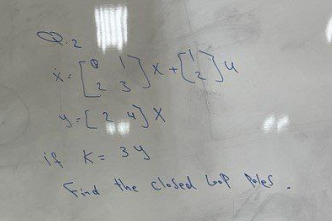 Q.2
ẋ = [0 1
2 3] x + [1
2] u
y = [2 4] x
if K = 3y
Find the closed loop poles.